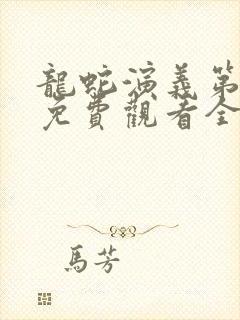 龍蛇演義第
免費觀看全
馬芳